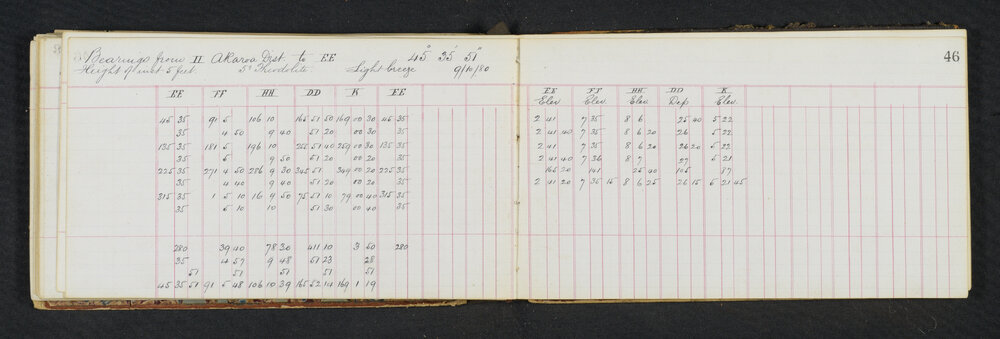 Bearings from II Akaroa Dist. to EE 45° 35' 51"
Height of inst 5 feet. 5" Theodolite. Light breeze 9/10/80
46
EE FF HH DD K EE
45 35 91 5 106 10 165 51 50 169 00 30 45 35
35 4 50 9 40 51 20 00 30 35
135 35 181 5 196 10 255 51 40 259 00 30 135 35
35 5 9 50 51 20 00 20 35
225 35 271 4 50 286 9 30 345 51 349 00 20 225 35
35 4 40 9 40 51 20 00 20 35
315 35 1 5 10 16 9 50 75 51 10 79 00 40 315 35
35 5 10 10 51 30 00 40 35
280 39 40 78 30 411 10 3 50 280
35 4 57 9 48 51 23 28
51 51 51 51 51
45 35 51 91 5 48 106 10 39 165 52 14 169 1 19
EE FF HH DD K
Elev Elev Elev Dep Elev
2 41 7 35 8 6 25 40 5 22
2 41 40 7 35 8 6 20 26 5 22
2 41 7 35 8 6 20 26 20 5 22
2 41 40 7 36 8 7 27 5 21
165 20 141 25 40 105 87
2 41 20 7 35 15 8 6 25 26 15 5 21 45